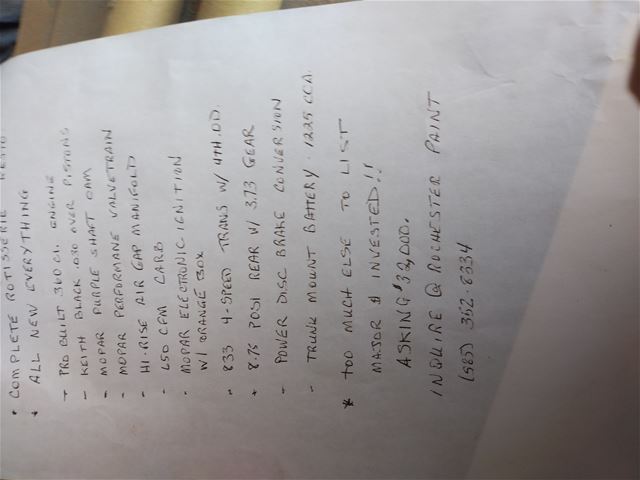 • COMPLETE ROTISSERIE RESTO
* ALL NEW EVERYTHING
- PRO BUILT 360 C.I. ENGINE
- KEITH BLACK .030 OVER PISTONS
- MOPAR PURPLE SHAFT CAM
- MOPAR PERFORMANE VALVETRAIN
- HI-RISE AIR GAP MANIFOLD
- 650 CFM CARB
- MOPAR ELECTRONIC IGNITION
W/ ORANGE BOX
- 833 4-SPEED TRANS W/ 4TH.OD.
* 8.75 POSI REAR W/ 3.73 GEAR
- POWER DISC BRAKE CONVERSION
- TRUNK MOUNT BATTERY - 1225 CCA.
* TOO MUCH ELSE TO LIST
MAJOR $ INVESTED!!
ASKING $32,000.
INQUIRE @ ROCHESTER PAINT
(585) 352-8334